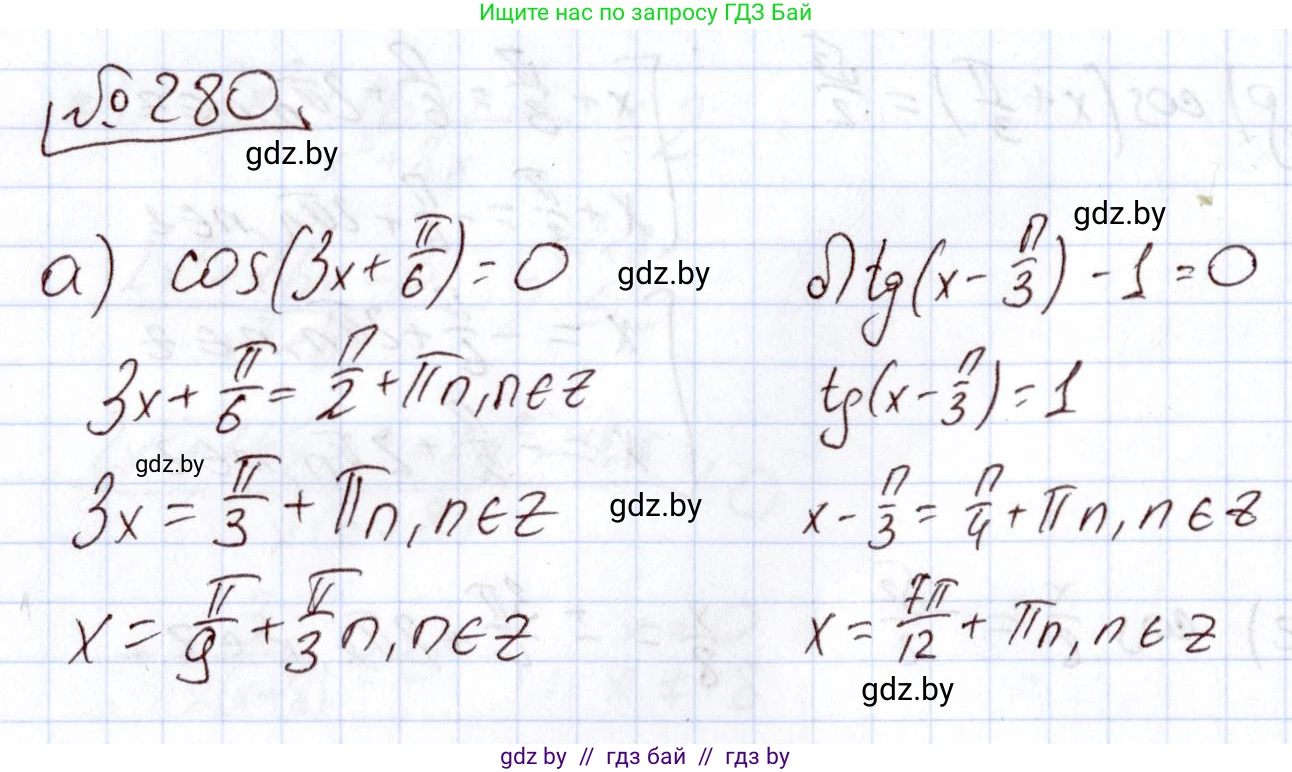 Ищите нас по запросу ГДЗ Бай
№ 280
gdz.by
а) cos(3x + π/6) = 0
gdz.by
3x + π/6 = π/2 + πn, n ∈ Z
gdz.by
3x = π/3 + πn, n ∈ Z
gdz.by
x = π/9 + π/3 n, n ∈ Z
gdz.by
б) tg(x - π/3) - 1 = 0
tg(x - π/3) = 1
x - π/3 = π/4 + πn, n ∈ Z
x = 7π/12 + πn, n ∈ Z
gdz.by
gdz by // гдз бай // гдз by